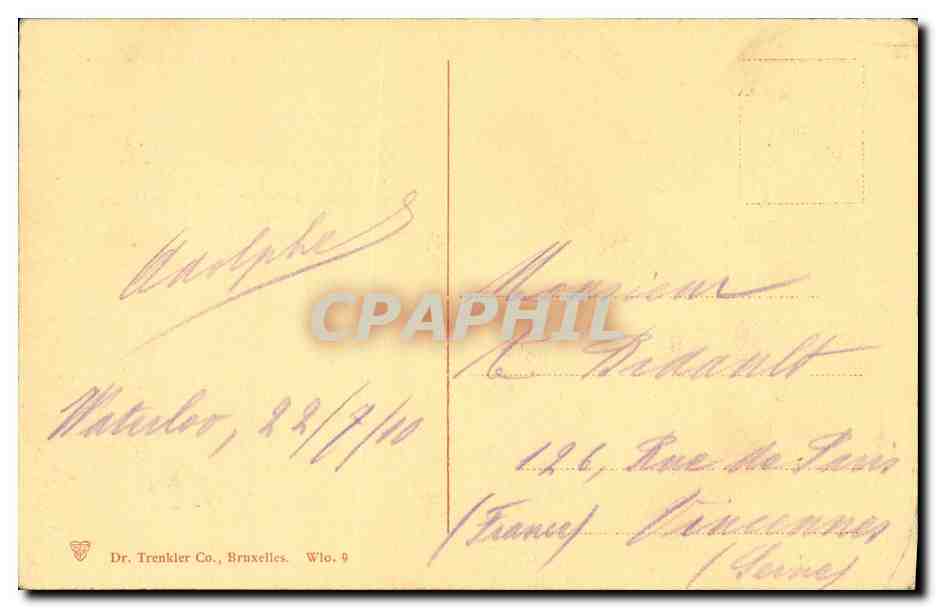 Adolphe
Waterloo, 22/7/10
Dr. Trenkler Co., Bruxelles. Wlo. 9
Monsieur
Bidault
126, Rue de Paris
(France) Vincennes
(Seine)
CPAPHIL